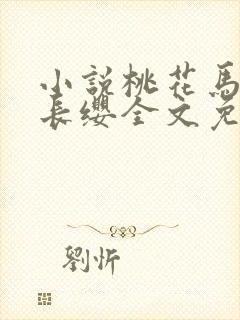 小説桃花馬
長纓全文免
劉忻